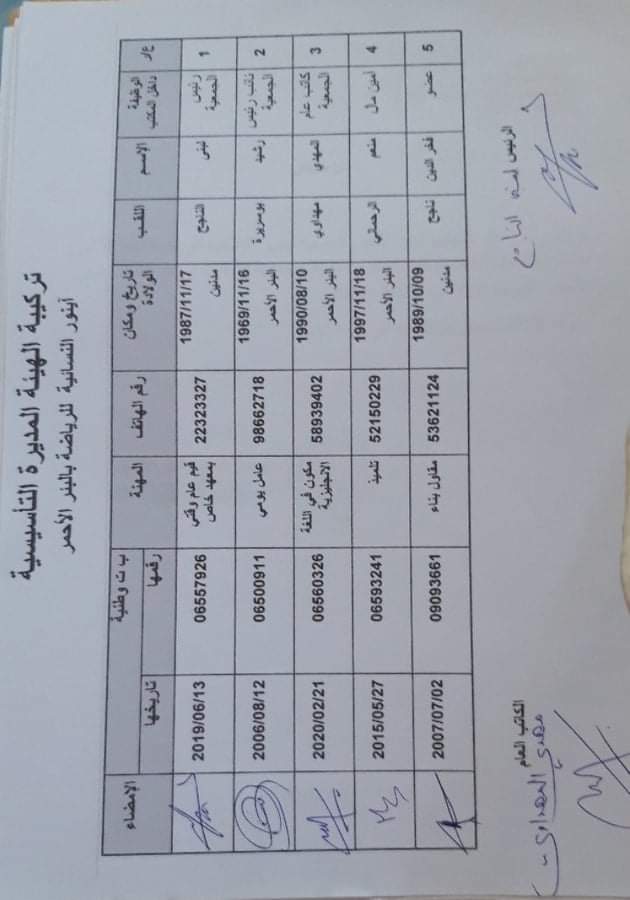 تركيبة الهيئة المديرة التأسيسية
أينور النسائية للرياضة بالبئر الأحمر
ع/ر الوظيفة داخل المكتب الاسم اللقب تاريخ ومكان الولادة رقم الهاتف المهنة ب ت وطنية رقمها تاريخها الامضاء
1 رئيس الجمعية لبنى التاجح 1987/11/17 مدنين 22323327 قيم عام وقتي بمعهد خاص 06557926 2019/06/13
2 نائب رئيس الجمعية رشيد بوسريرة 1969/11/16 البئر الأحمر 98662718 عامل يومي 06500911 2006/08/12
3 كاتب عام الجمعية المهدي مهداوي 1990/08/10 البئر الأحمر 58939402 مكون في اللغة الانجليزية 06560326 2020/02/21
4 امين مال منعم الرحماني 1997/11/18 البئر الأحمر 52150229 تلميذ 06593241 2015/05/27
5 عضو فخر الدين ناجح 1989/10/09 مدنين 53621124 مقاول بناء 09093661 2007/07/02
الرئيس
الكاتب العام